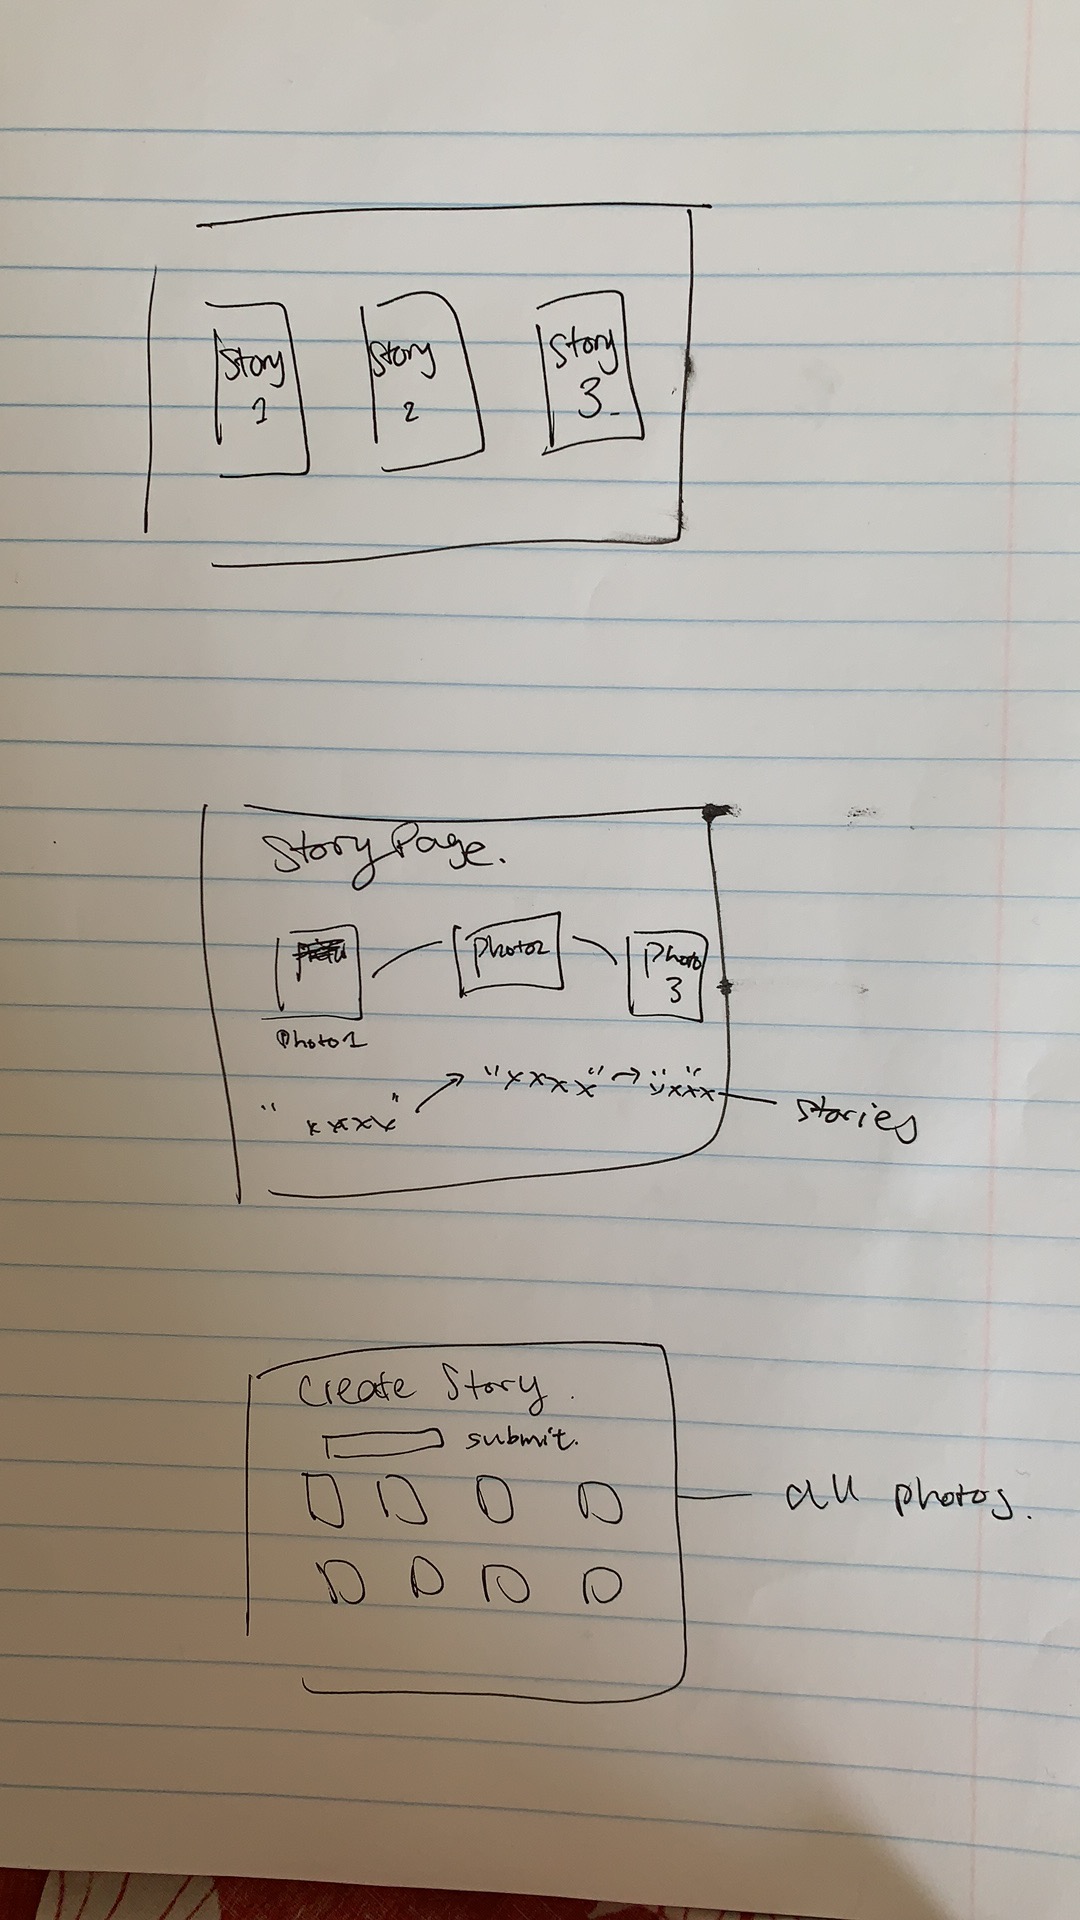 Story
1
Story
2
Story
3
Story Page.
Photo2
Photo
3
Photo1
"xxxx"
"xxxx"
"xxx"
stories
Create Story.
submit.
all photos.